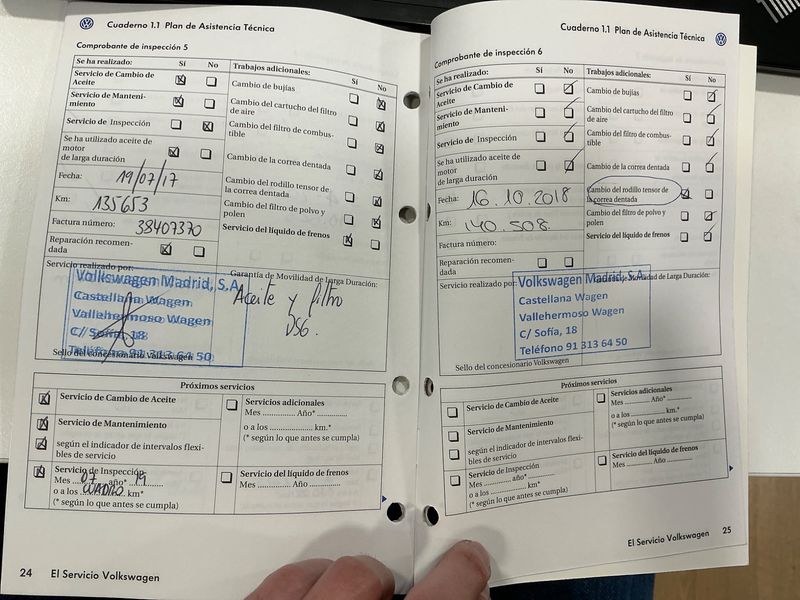 Cuaderno 1.1 Plan de Asistencia Técnica
Comprobante de inspección 5
Se ha realizado: Sí No
Servicio de Cambio de
Aceite
Servicio de Manteni-
miento
Servicio de Inspección
Se ha utilizado aceite de
motor
de larga duración
Fecha: 19/07/17
Km: 135653
Factura número: 38407370
Reparación recomen-
dada
Trabajos adicionales: Sí No
Cambio de bujías
Cambio del cartucho del filtro
de aire
Cambio del filtro de combus-
tible
Cambio de la correa dentada
Cambio del rodillo tensor de
la correa dentada
Cambio del filtro de polvo y
polen
Servicio del líquido de frenos
Servicio realizado por:
Volkswagen Madrid, S.A.
Castellana Wagen
Vallehermoso Wagen
C/ Sofía, 18
Teléfono 91 313 64 50
Sello del concesionario Volkswagen
Garantía de Movilidad de Larga Duración:
Aceite y filtro
DSG.
Próximos servicios
Servicio de Cambio de Aceite
Servicio de Mantenimiento
según el indicador de intervalos flexi-
bles de servicio
Servicio de Inspección
Mes 07 año* 19
o a los km*
(* según lo que antes se cumpla)
Servicios adicionales
Mes ............ Año* ................
o a los ...................... km.*
(* según lo que antes se cumpla)
Servicio del líquido de frenos
Mes ............ Año ................
24 El Servicio Volkswagen
Cuaderno 1.1 Plan de Asistencia Técnica
Comprobante de inspección 6
Se ha realizado: Sí No
Servicio de Cambio de
Aceite
Servicio de Manteni-
miento
Servicio de Inspección
Se ha utilizado aceite de
motor
de larga duración
Fecha: 16.10.2018
Km: 140.508
Factura número:
Reparación recomen-
dada
Trabajos adicionales: Sí No
Cambio de bujías
Cambio del cartucho del filtro
de aire
Cambio del filtro de combus-
tible
Cambio de la correa dentada
Cambio del rodillo tensor de
la correa dentada
Cambio del filtro de polvo y
polen
Servicio del líquido de frenos
Servicio realizado por:
Volkswagen Madrid, S.A.
Castellana Wagen
Vallehermoso Wagen
C/ Sofía, 18
Teléfono 91 313 64 50
Movilidad de Larga Duración:
Sello del concesionario Volkswagen
Próximos servicios
Servicio de Cambio de Aceite
Servicio de Mantenimiento
según el indicador de intervalos flexi-
bles de servicio
Servicio de Inspección
Mes ............ año* ............
o a los ...................... km*
(* según lo que antes se cumpla)
Servicios adicionales
Mes ............ Año* ................
o a los ...................... km.*
(* según lo que antes se cumpla)
Servicio del líquido de frenos
Mes ............ Año ................
El Servicio Volkswagen 25